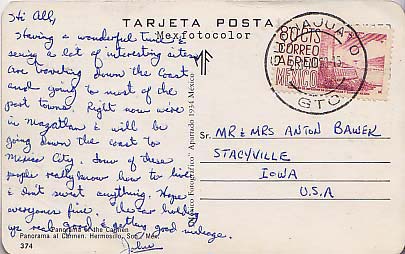 TARJETA POSTAL
Mexfotocolor
Hi All,
Having a wonderful time &
seeing a lot of interesting sites.
Are traveling down the Coast
and going to most of the
port towns. Right now we're
in Mazatlan & will be
going down the coast to
Mexico City. Some of these
people really know how to live
& don't sweat anything. Hope
everyones fine. The car holding
up real good & getting good mileage.
John
Panorama of the Carmen
Panorama al Carmen. Hermosillo, Son. Mex.
374
México Fotocolor Apartado 1954 México
GTO.
80 CTS
CORREO
AEREO
MEXICO
Sr. MR & MRS ANTON BAWEK
STACYVILLE
IOWA
U.S.A